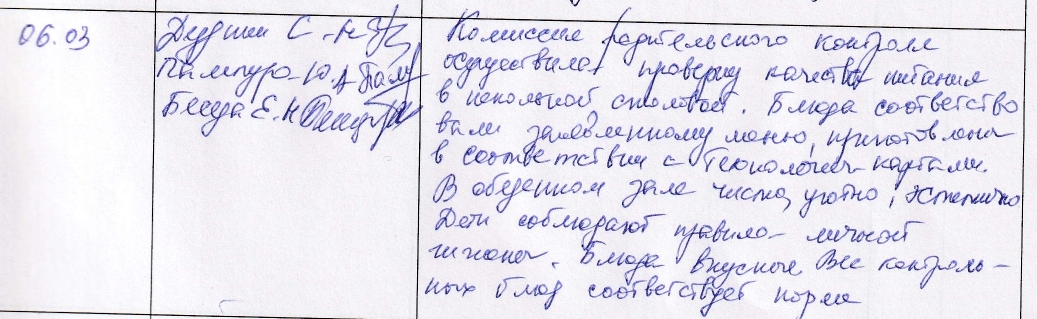 06.03
Дудник С.Н.
Пампура Ю.А.
Беседа Е.Н.
Комиссия родительского контроля
осуществила проверку качества питания
в школьной столовой. Блюда соответство
вали заявленному меню, приготовлены
в соответствии с технологич. картами.
В обеденном зале чисто, уютно, эстетично
Дети соблюдают правила личной
гигиены. Блюда вкусные Вес контроль-
ных блюд соответствует норме